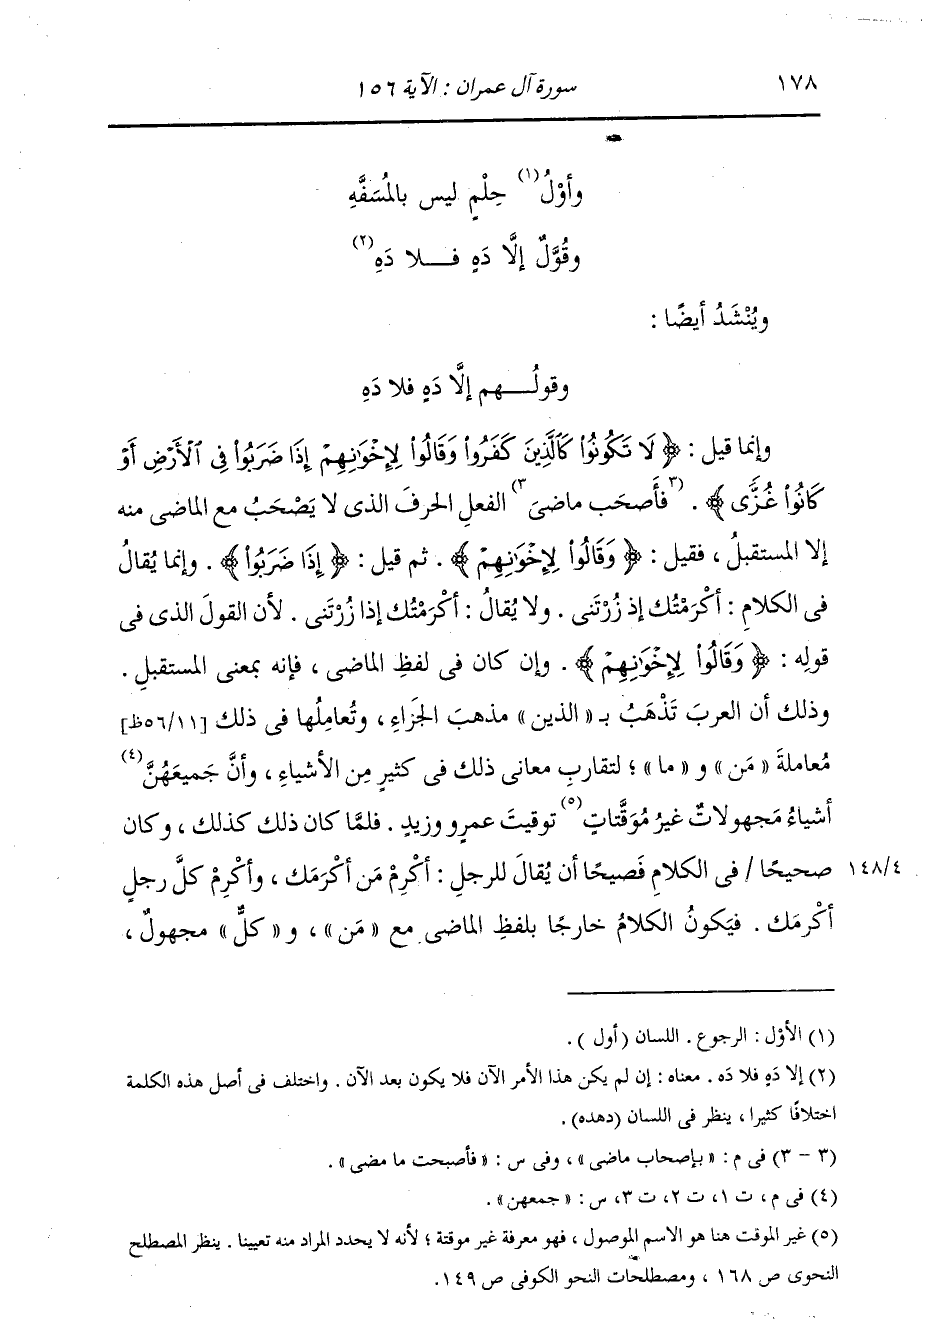 ١٧٨ سورة آل عمران : الآية ١٥٦
وأَوْلُ(١) حِلْمٍ ليس بالمُسَفَّهِ
وقُوَّلٌ إلَّا دَهٍ فــلا دَهِ(٢)
ويُنْشَدُ أيضًا :
وقولُــهم إلَّا دَهٍ فلا دَهِ
وإنما قيل : ﴿ لَا تَكُونُوا۟ كَٱلَّذِينَ كَفَرُوا۟ وَقَالُوا۟ لِإِخْوَٰنِهِمْ إِذَا ضَرَبُوا۟ فِى ٱلْأَرْضِ أَوْ
كَانُوا۟ غُزًّى ﴾ . (٣فأَصحَب ماضىَ٣) الفعلِ الحرفَ الذى لا يَصْحَبُ مع الماضى منه
إلا المستقبلُ ، فقيل : ﴿ وَقَالُوا۟ لِإِخْوَٰنِهِمْ ﴾ . ثم قيل : ﴿ إِذَا ضَرَبُوا۟ ﴾ . وإنما يُقالُ
فى الكلامِ : أكْرَمْتُك إذ زُرْتَنى . ولا يُقالُ : أكْرَمْتُك إذا زُرْتَنى . لأن القولَ الذى فى
قولِه : ﴿ وَقَالُوا۟ لِإِخْوَٰنِهِمْ ﴾ . وإن كان فى لفظِ الماضى ، فإنه بمعنى المستقبلِ .
وذلك أن العربَ تَذْهَبُ بـ « الذين » مذهبَ الجَزاءِ ، وتُعامِلُها فى ذلك [٥٦/١١ظ]
مُعاملةَ « مَن » و « ما » ؛ لتقاربِ معانى ذلك فى كثيرٍ مِن الأشياءِ ، وأنَّ جَميعَهُنَّ(٤)
أشياءُ مَجهولاتٌ غيرُ مُوَقَّتاتٍ(٥) توقيتَ عمرٍو وزيدٍ . فلمَّا كان ذلك كذلك ، وكان
١٤٨/٤ صحيحًا / فى الكلامِ فَصيحًا أن يُقالَ للرجلِ : أكْرِمْ مَن أكْرَمَك ، وأكْرِمْ كلَّ رجلٍ
أكْرَمَك . فيَكونُ الكلامُ خارجًا بلفظِ الماضى مع « مَن » ، و « كلٌّ » مجهولٌ ،
(١) الأوْل : الرجوع . اللسان (أول ) .
(٢) إلا دَهٍ فلا دَه . معناه : إن لم يكن هذا الأمر الآن فلا يكون بعد الآن . واختلف فى أصل هذه الكلمة
اختلافًا كثيرا ، ينظر فى اللسان (دهده) .
(٣ - ٣) فى م : « بإصحاب ماضى » ، وفى س : « فأصبحت ما مضى » .
(٤) فى م ، ت ١، ت ٢، ت ٣، س : « جمعهن » .
(٥) غير الموقت هنا هو الاسم الموصول ، فهو معرفة غير موقتة ؛ لأنه لا يحدد المراد منه تعيينا . ينظر المصطلح
النحوى ص ١٦٨ ، ومصطلحات النحو الكوفى ص ١٤٩.